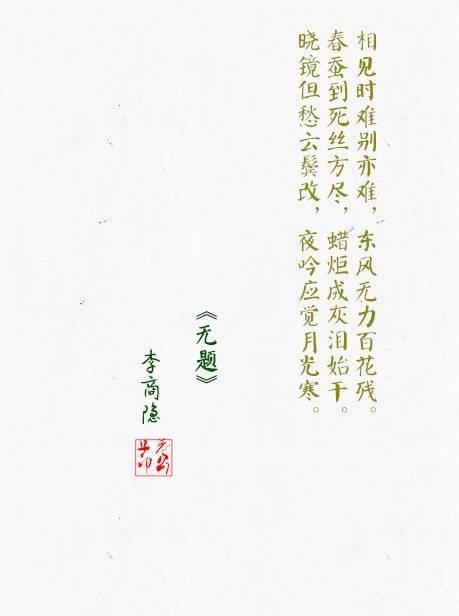 相见时难别亦难，东风无力百花残。
春蚕到死丝方尽，蜡炬成灰泪始干。
晓镜但愁云鬓改，夜吟应觉月光寒。
《无题》
李商隐